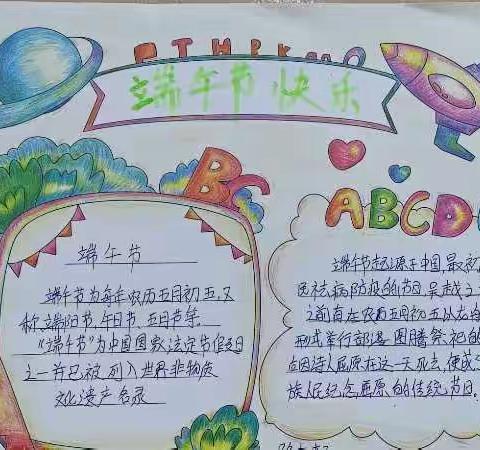 端午节快乐
BC
ABCD
端午节
端午节为每年农历五月初五,又
称端阳节,午日节,五月节等.
“端午节”为中国国家法定节假日
之一并已被列入世界非物质
文化遗产名录
端午节起源于中国,最初
病防疫的节日,吴越之
之前有在农历五月初五以
形式举行部落图腾祭祀的
因诗人屈原在这一天死去,便成
族人民纪念屈原的传统节日